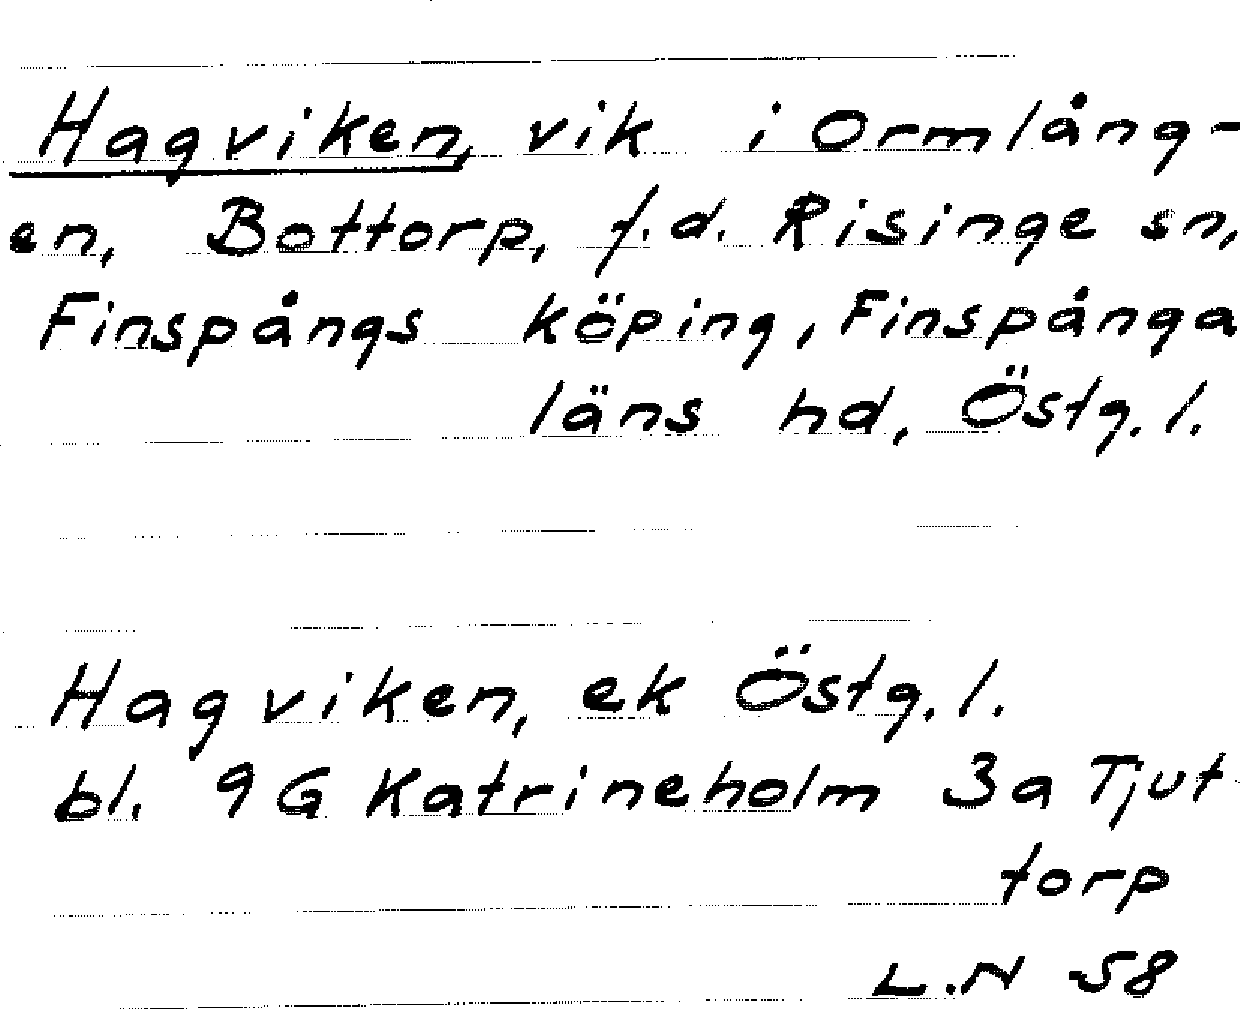 Hagviken, vik i Ormlång-
en, Bottorp, f.d. Risinge sn,
Finspångs köping, Finspånga
läns hd, Östg. l.
Hagviken, ek Östg. l.
bl. 9G Katrineholm 3a Tjut
torp
L.N 58